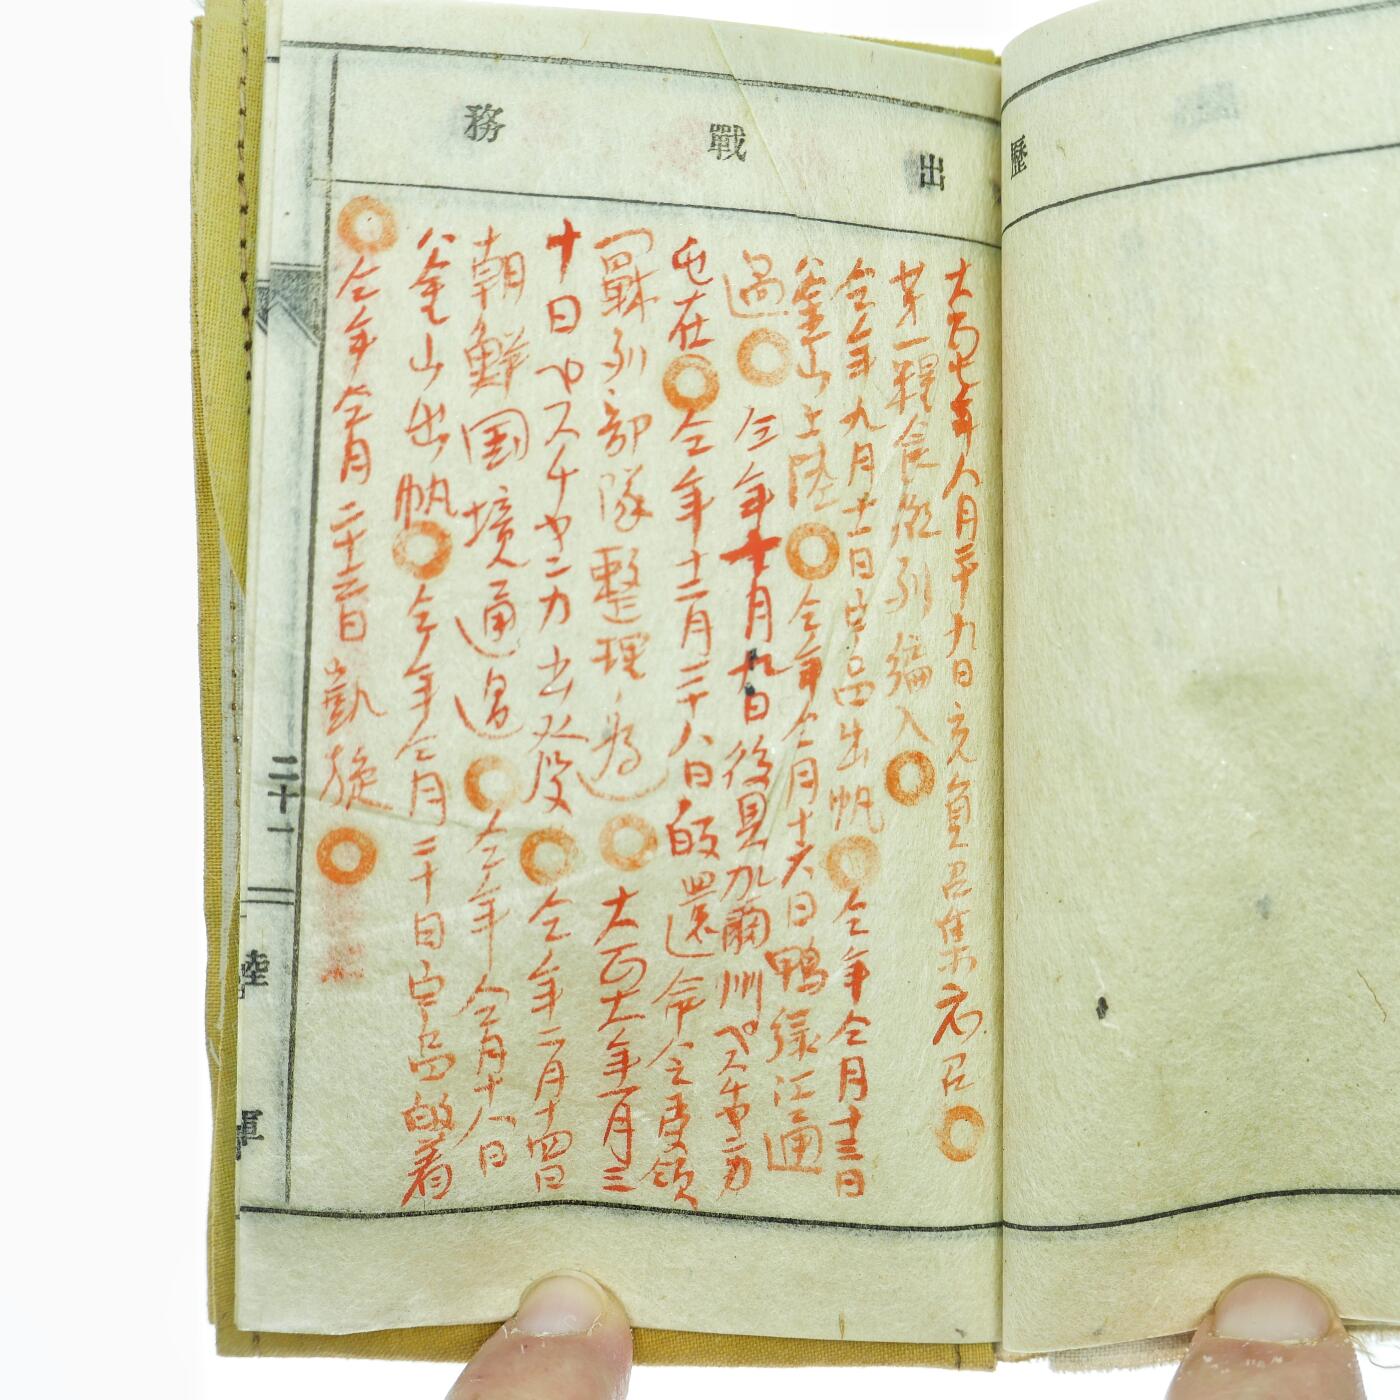 歴
出戰務
大正七年八月二十九日充員召集応召
第一糧食縱列編入
仝年九月十一日宇品出帆 仝年仝月十三日
釜山上陸 仝年仝月十六日鴨綠江通
過 仝年十月九日後貝加爾州ペスチヤンカ
屯在 仝年十二月二十八日皈還命令受領
戰列部隊整理ノ為 大正八年一月三
十日ペスチヤンカ出発 仝年二月十四日
朝鮮国境通過 仝年仝月十八日
釜山出帆 仝年仝月二十日宇品皈着
仝年仝月二十三日凱旋
二十一
陸軍